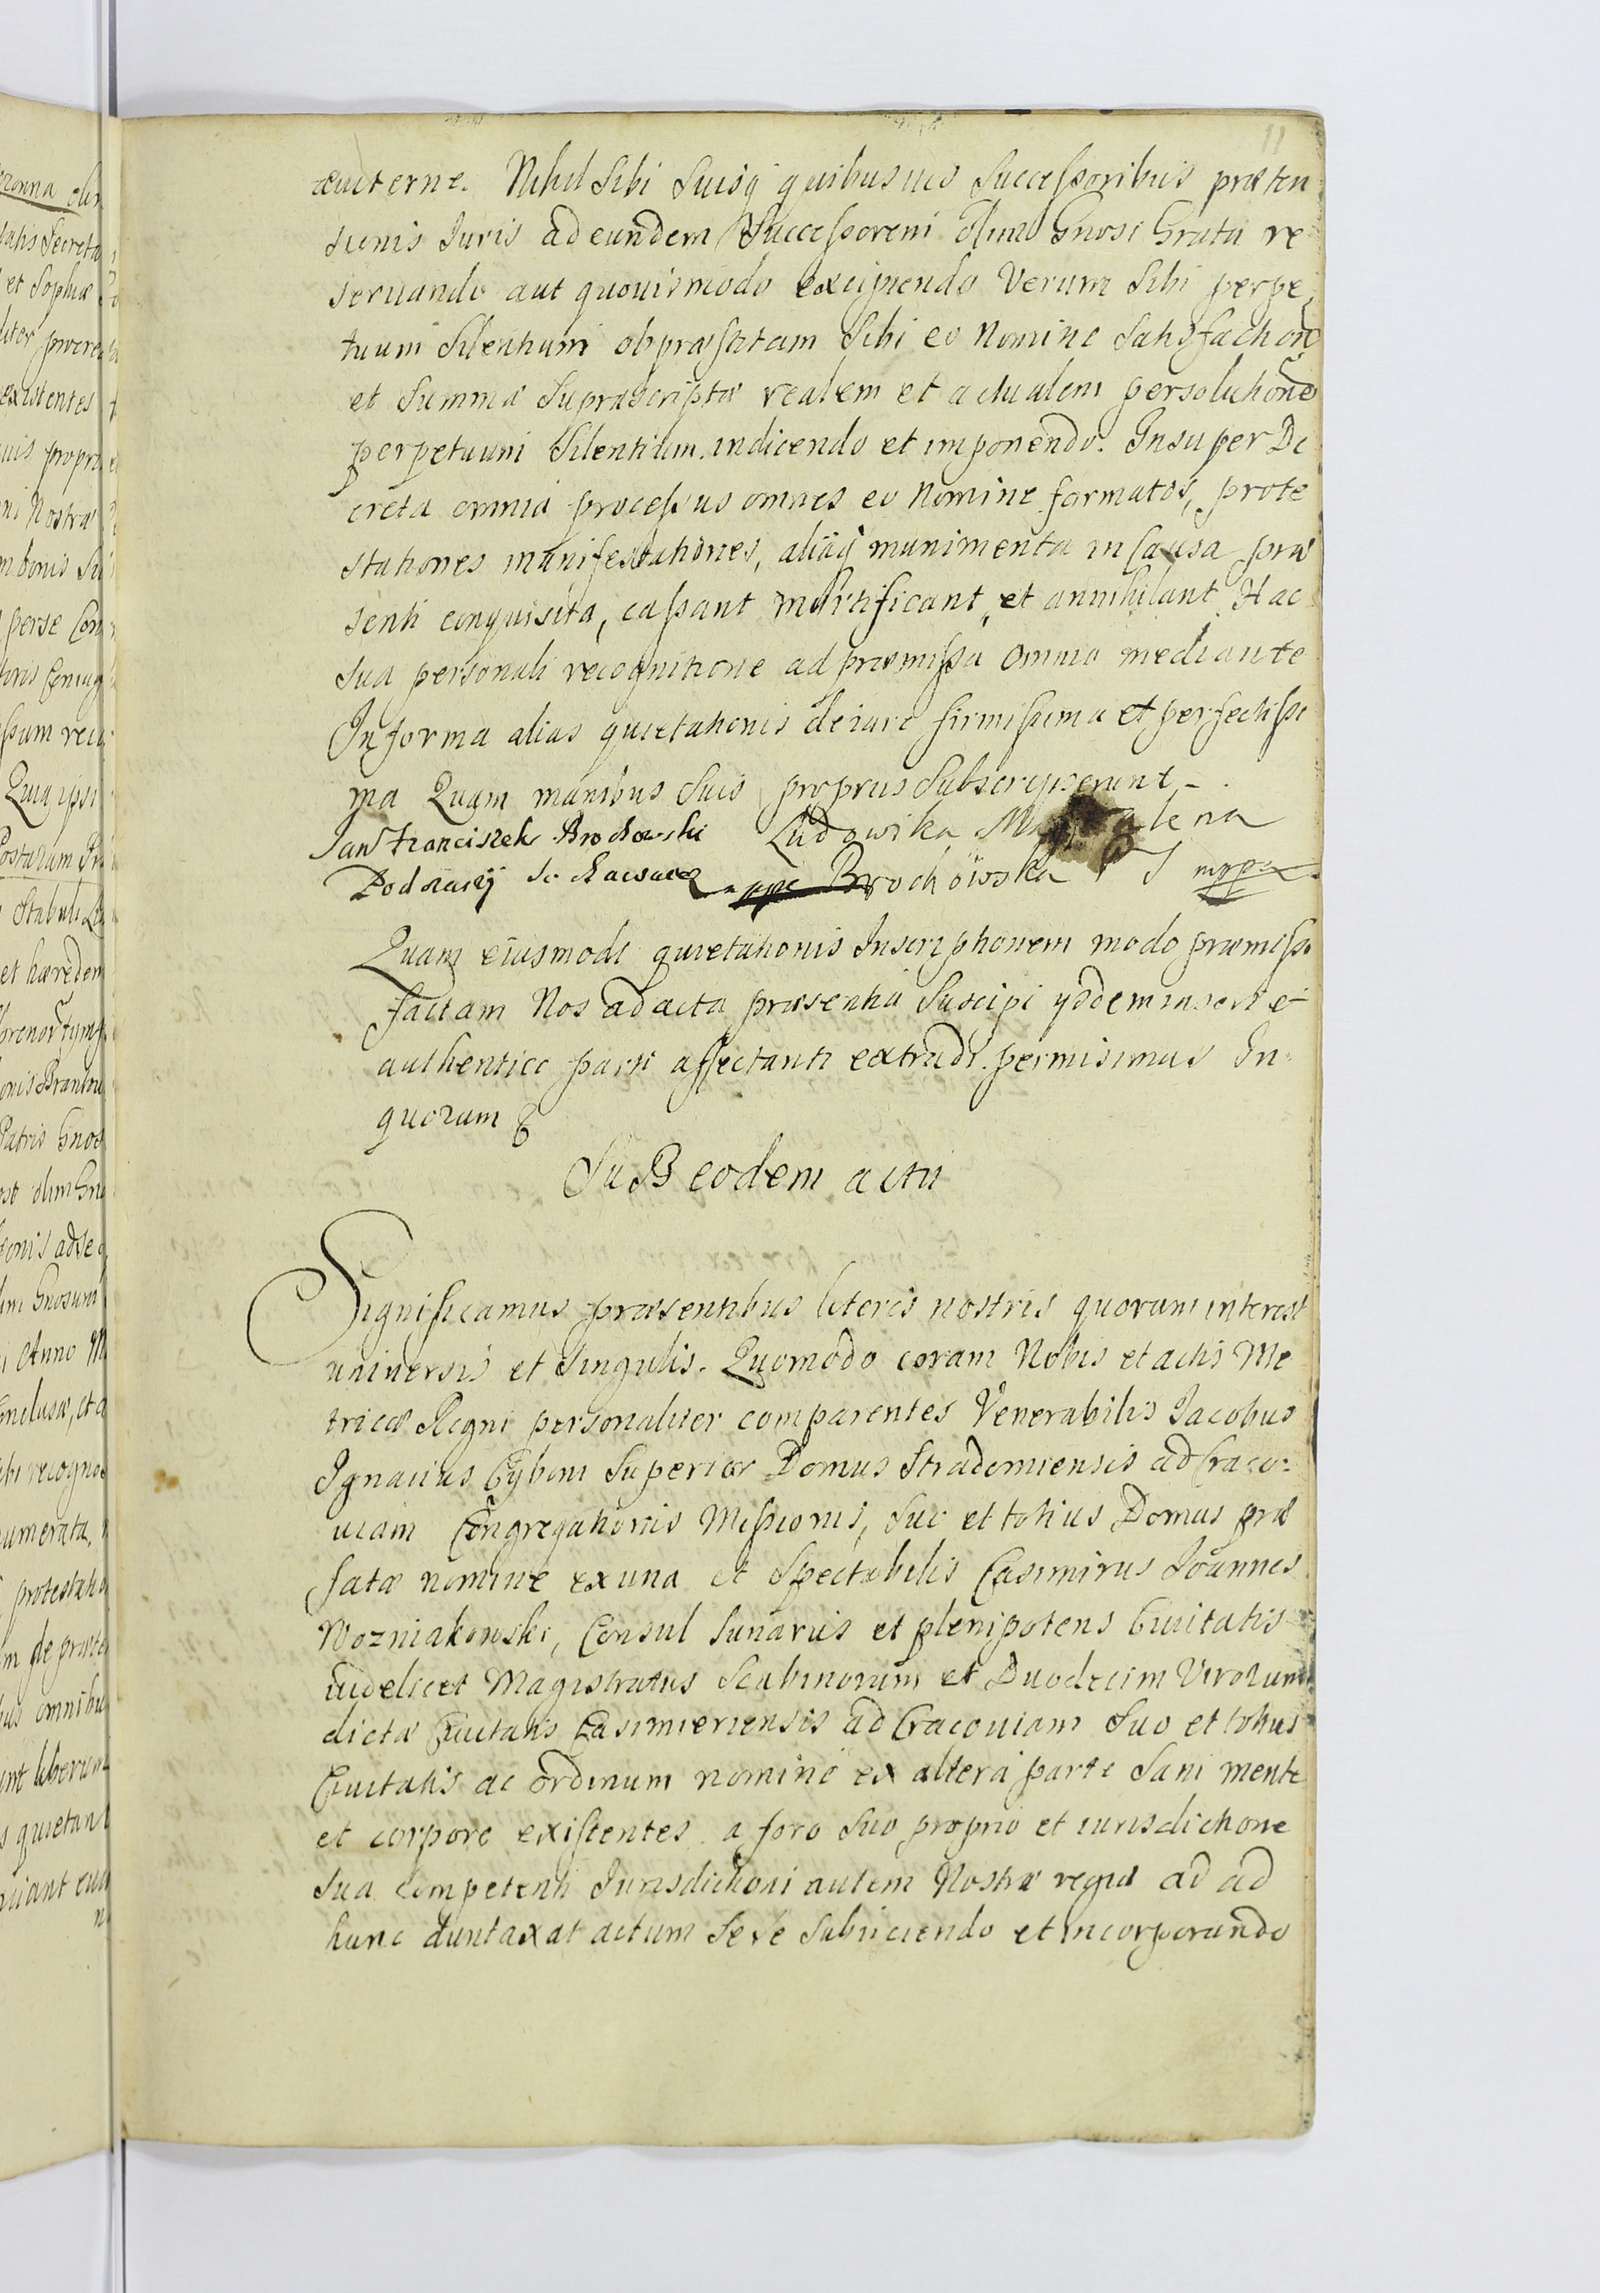 11
æviterne. Nihil Sibi Suisq́ quibusuis Successoribus præten
sionis Juris ad eundem Successorem olim Gnosi Gratu re
seruando aut quouismodo excipiendo Verum Sibi perpe
tuum Silentium ob præstitam Sibi eo Nomine Satisfaction
et Summæ Suprascriptæ realem et actualem persolutionẽ
perpetuum Silentium indicendo et imponendo. Insuper De
creta omnia processus omnes eo Nomine formatos, prote
stationes manifestationes, aliaq́ munimenta in Causa præ
senti conquisita, cassant mortificant, et annihilant Hac
Sua personali recognitione ad præmissa omnia mediante
In forma alias quietationis de iure firmissima et perfectissi
ma Quam manibus Suis proprijs Subscripserunt
Jan Franciszek Brochowski Ludowika Magdalena
Podczaszy Brochowska mppa
Quam eiusmodi quietationis Inscriptionem modo præmisso
factam Nos ad acta præsentia Suscipi ijsdem inseri et
authentice parti affectanti extradi permisimus In
quorum
SuB eodem actu
Significamus præsentibus literis nostris quorum interest
universis et Singulis. Quomodo coram Nobis et actis Me
tricæ Regni personaliter comparentes Venerabilis Jacobus
Ignatius Cyboni Superior Domus Stradomiensis ad Craco
uiam Congregationis Missionis, Suo et totius Domus præ
fatæ nomine ex una et Spectabilis Casimirus Joannes
Wozniakowski, Consul Iuratus et plenipotens Ciuitatis
uidelicet Magistratus Scabinorum et Duodecim Virorum
dictæ Ciuitatis Casimiriensis ad Cracouiam Suo et totius
Ciuitatis ac ordinum nomine ex altera parte Sani mente
et corpore existentes a foro Suo proprio et iurisdictione
Sua competenti Iurisdictioni autem Nostræ regiæ ad ad
hunc duntaxat actum Sese Subiiciendo et incorporando